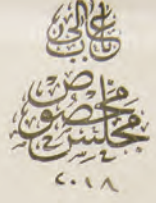 باب عالی
مجلس مخصوص
٢٠١٨